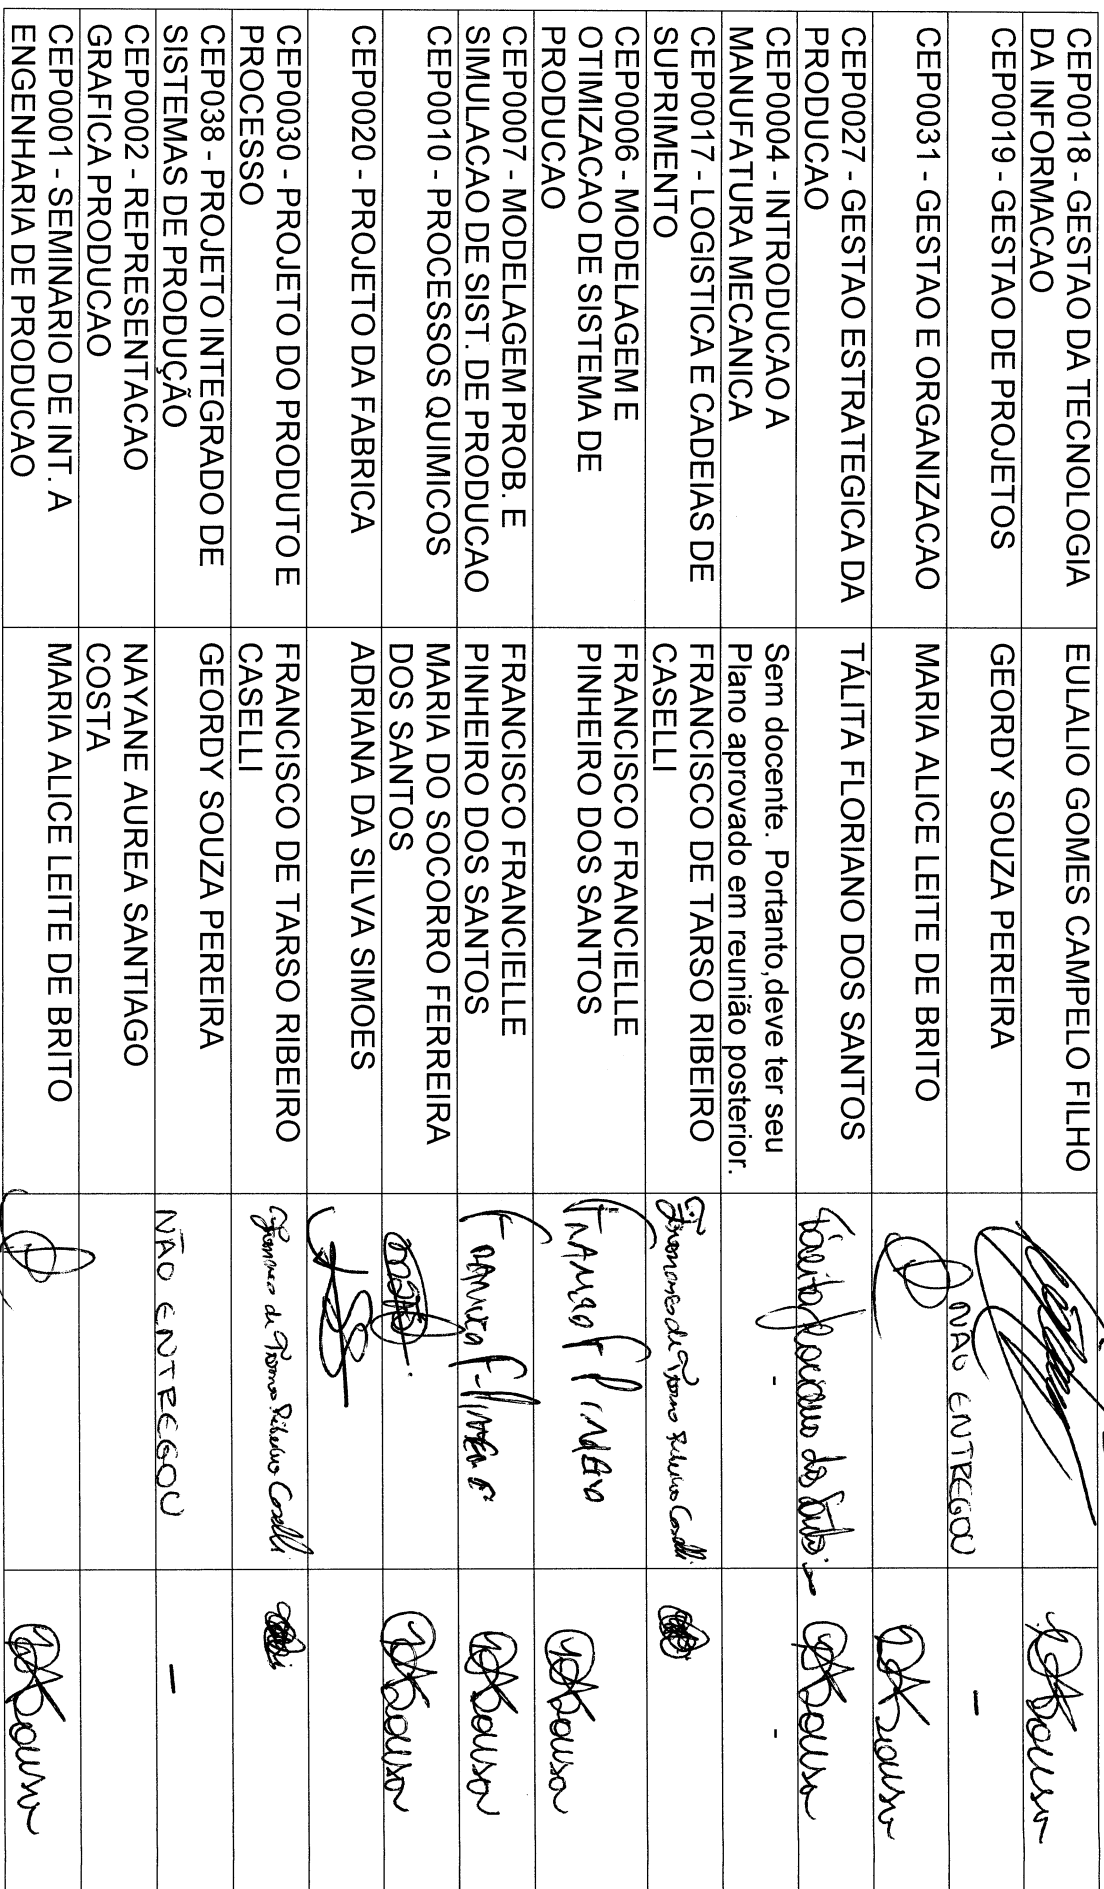 CEP0018 - GESTAO DA TECNOLOGIA
DA INFORMACAO
EULALIO GOMES CAMPELO FILHO
CEP0019 - GESTAO DE PROJETOS
GEORDY SOUZA PEREIRA
NÃO ENTREGOU
-
CEP0031 - GESTAO E ORGANIZACAO
MARIA ALICE LEITE DE BRITO
CEP0027 - GESTAO ESTRATEGICA DA
PRODUCAO
TÁLITA FLORIANO DOS SANTOS
Tálita Floriano dos Santos
CEP0004 - INTRODUCAO A
MANUFATURA MECANICA
Sem docente. Portanto,deve ter seu
Plano aprovado em reunião posterior.
-
-
CEP0017 - LOGISTICA E CADEIAS DE
SUPRIMENTO
FRANCISCO DE TARSO RIBEIRO
CASELLI
Francisco de Tarso Ribeiro Caselli
CEP0006 - MODELAGEM E
OTIMIZACAO DE SISTEMA DE
PRODUCAO
FRANCISCO FRANCIELLE
PINHEIRO DOS SANTOS
CEP0007 - MODELAGEM PROB. E
SIMULACAO DE SIST. DE PRODUCAO
FRANCISCO FRANCIELLE
PINHEIRO DOS SANTOS
CEP0010 - PROCESSOS QUIMICOS
MARIA DO SOCORRO FERREIRA
DOS SANTOS
CEP0020 - PROJETO DA FABRICA
ADRIANA DA SILVA SIMOES
CEP0030 - PROJETO DO PRODUTO E
PROCESSO
FRANCISCO DE TARSO RIBEIRO
CASELLI
Francisco de Tarso Ribeiro Caselli
CEP038 - PROJETO INTEGRADO DE
SISTEMAS DE PRODUÇÃO
GEORDY SOUZA PEREIRA
NÃO ENTREGOU
-
CEP0002 - REPRESENTACAO
GRAFICA PRODUCAO
NAYANE AUREA SANTIAGO
COSTA
CEP0001 - SEMINARIO DE INT. A
ENGENHARIA DE PRODUCAO
MARIA ALICE LEITE DE BRITO